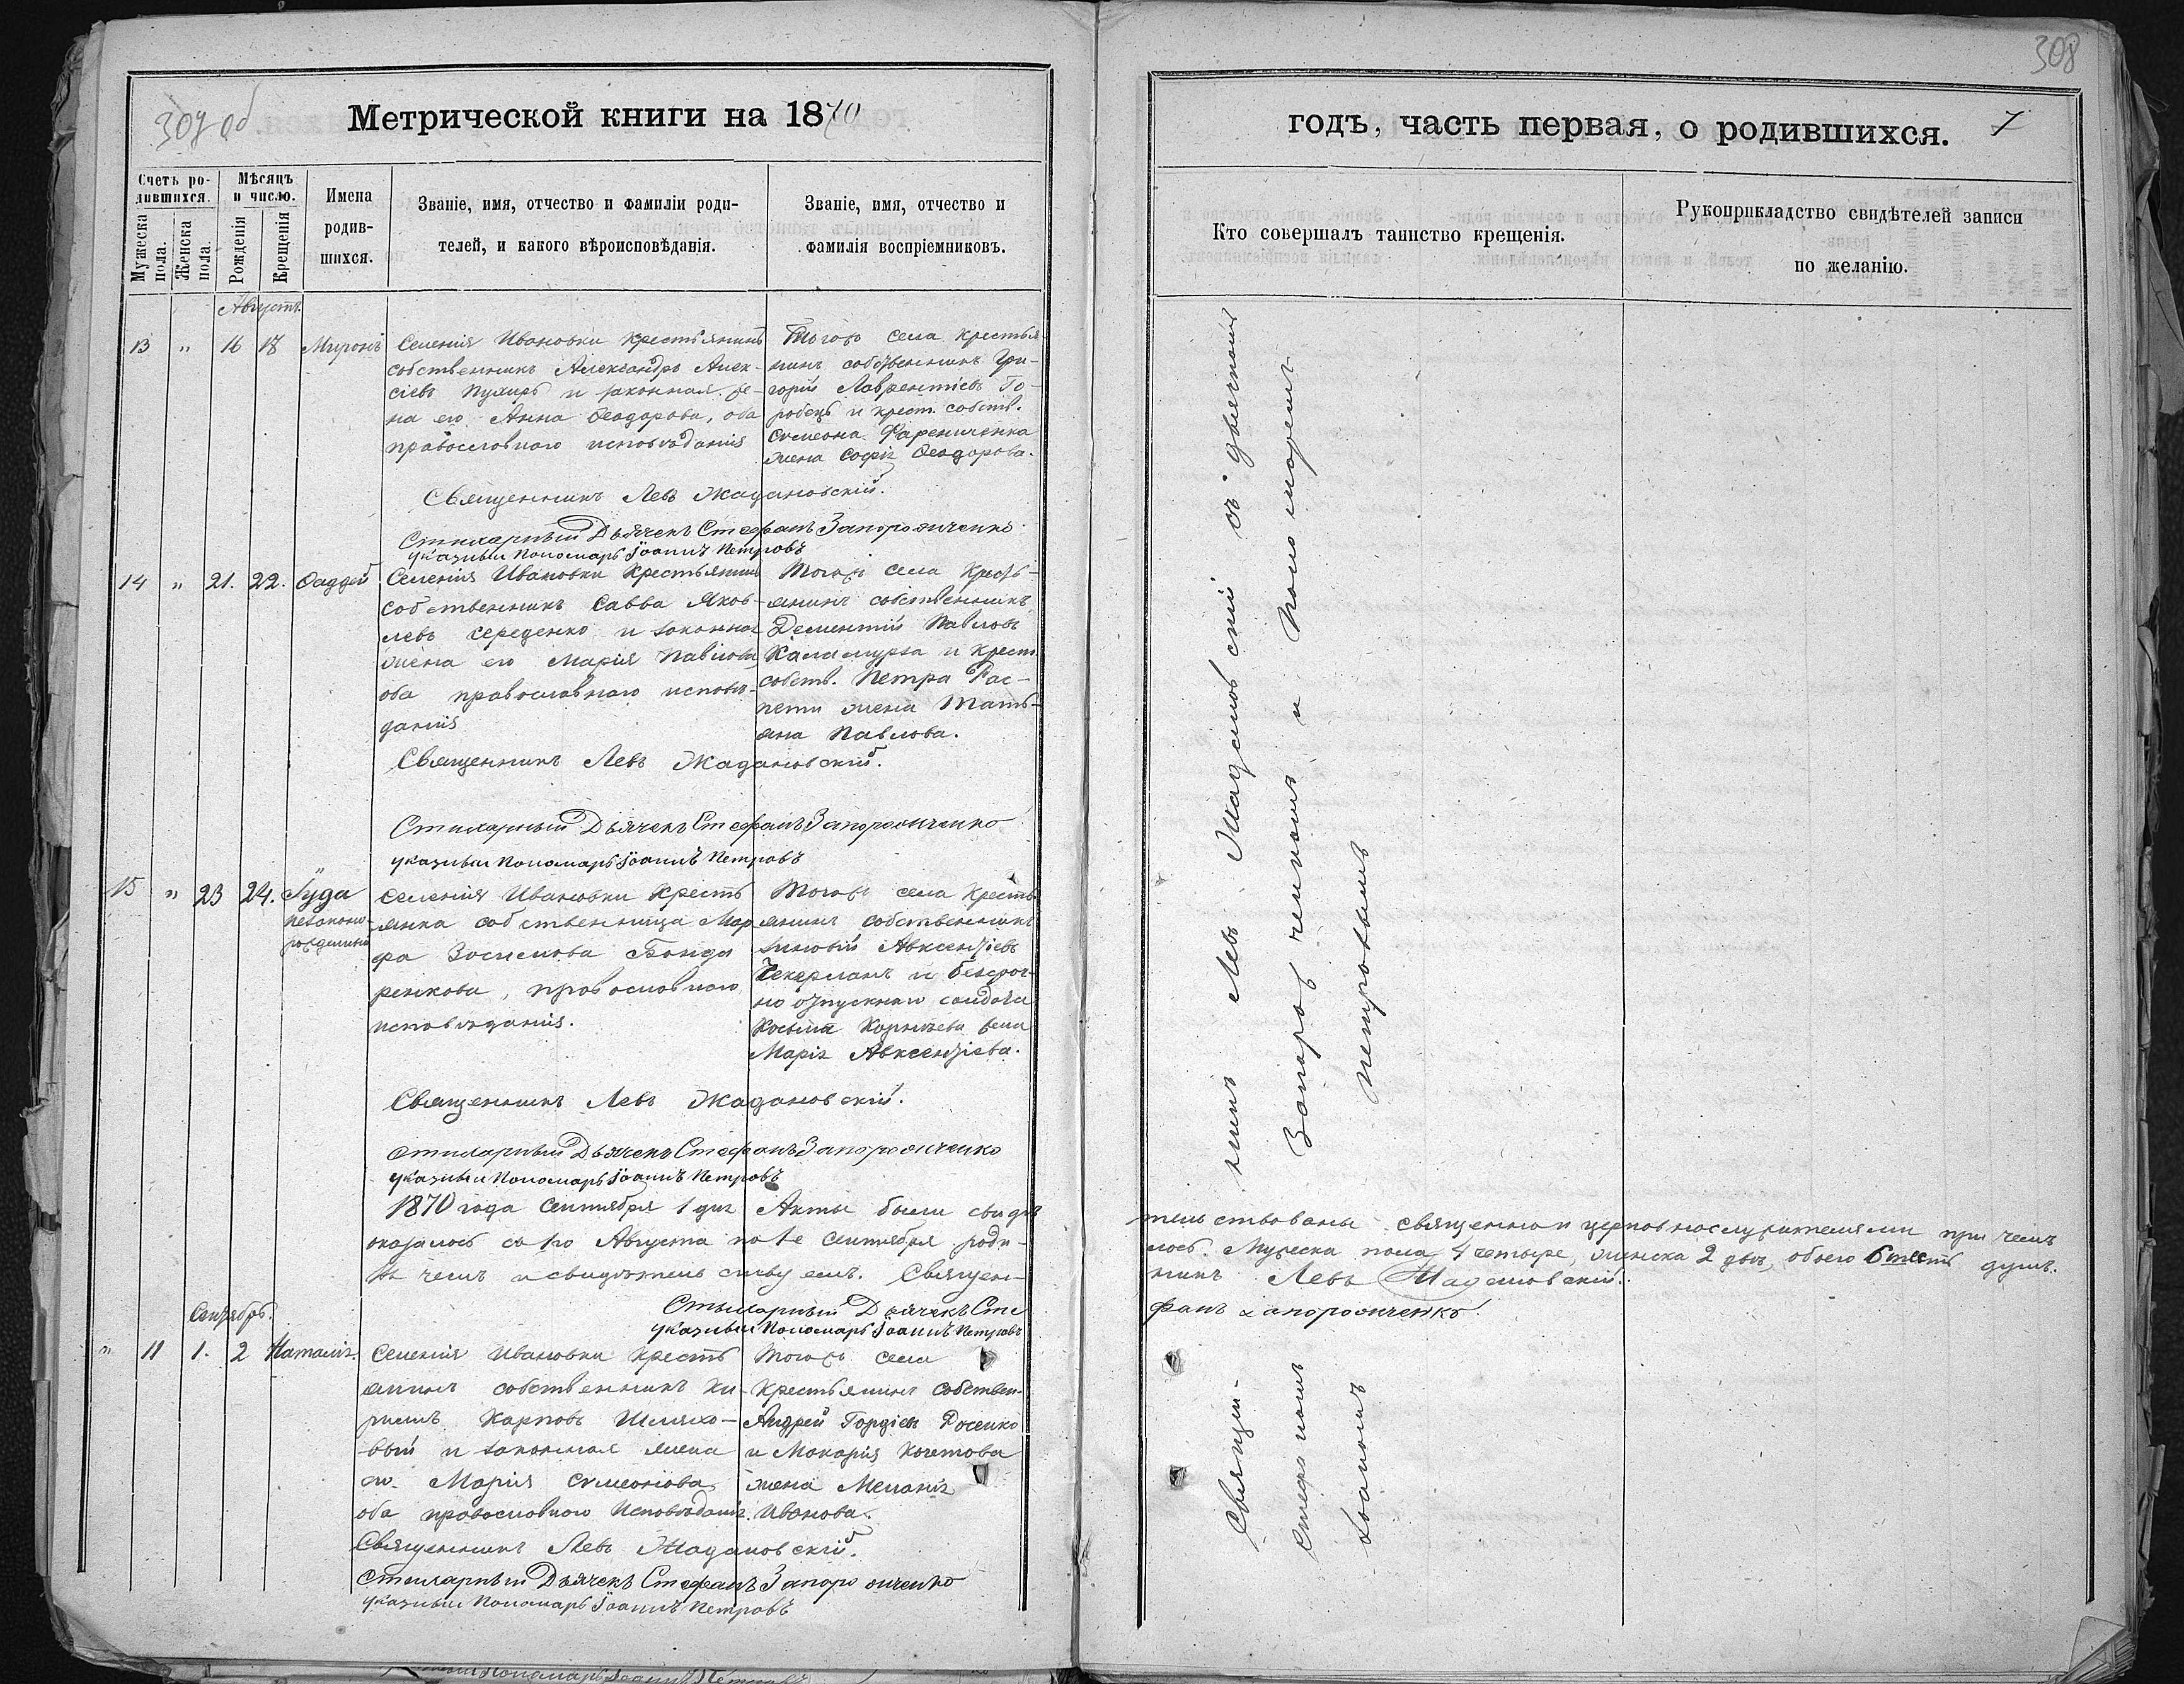 307 об
Метрической книги на 1870
Счетъ ро-
дившихся.
Мужеска
пола.
Женска
пола.
Мѣсяцъ
и число.
Рожденія
Крещенія
Имена
родив-
шихся.
Званіе, имя, отчество и фамиліи роди-
телей, и какого вѣроисповѣданія.
Званіе, имя, отчество и
фамилія воспріемниковъ.
Августъ.
13 " 16 17 Миронъ
Селенія Ивановки крестьянинъ
собственникъ Александръ Алек-
сіевъ и законная же-
на его Анна Ѳеодорова, оба
православнаго исповѣданія
Тогожъ села крестья
нинъ собственникъ Гри-
горій Лаврентіевъ Го-
робецъ и крест. собств.
Сѵмеона Фарениченка
жена Софія Ѳеодорова.
Священникъ Левъ Жадановскій.
Стихарный Дьячекъ Стефанъ Запорожченко
указный Пономарь Іоаннъ Петровъ
14 " 21. 22. Ѳаддей
Селенія Ивановки крестьянинъ
собственникъ Савва Яков-
левъ Середенко и законная
жена его Марія Павлова,
оба православнаго исповѣ-
данія
Тогожъ села кресть-
янинъ собственникъ
Дементій Павловъ
Каламурза и крест.
собств. Петра Рас-
пети жена Тать-
яна Павлова.
Священникъ Левъ Жадановскій.
Стихарный Дьячекъ Стефанъ Запорожченко
указный Пономарь Іоаннъ Петровъ
15 " 23 24. Іуда
незаконно-
рожденный
Селенія Ивановки кресть
янка собственница Мар
фа Зосимова Бонда
ренкова, православнаго
исповѣданія.
Тогожъ села кресть
янинъ собственникъ
Авксентіевъ
Чекерланъ и безсроч-
но отпускнаго солдата
Косьма жена
Марія Авксентіева.
Священникъ Левъ Жадановскій.
Стихарный Дьячекъ Стефанъ Запорожченко
указный Пономарь Іоаннъ Петровъ
1870 года Сентября 1 дня Акты были свидѣ
оказалось съ 1го Августа по 1е Сентября роди-
въ чемъ и свидѣтельствуемъ. Священ-
Стихарный Дьячекъ Сте
указный Пономарь Іоаннъ Петровъ
Сентябрь.
" 11 1. 2 Наталія.
Селенія Ивановки кресть
янинъ собственникъ Ки-
рилъ Карповъ Шляхо-
вый и законная жена
его Марія Сѵмеонова
оба православнаго исповѣданія.
Тогожъ села
крестьянинъ собствен.
Андрей Гордіевъ Доценко
и Макарія Кочетова
жена Меланія
Иванова.
Священникъ Левъ Жадановскій.
Стихарный Дьячекъ Стефанъ Запорожченко
указный Пономарь Іоаннъ Петровъ
308
годъ, часть первая, о родившихся. 7
Кто совершалъ таинство крещенія.
Рукоприкладство свидѣтелей записи
по желанію.
Священ-
никъ Левъ Жадановскій съ дьячкомъ
Стефаномъ
Запорожченкомъ и Пономаремъ
Іоанномъ
Петровымъ
тельствованы священно и церковнослужителями при чемъ
лось. Мужеска пола 4 четыре, женска 2 двѣ, обоего 6 шесть душъ.
никъ Левъ Жадановскій.
фанъ Запорожченко